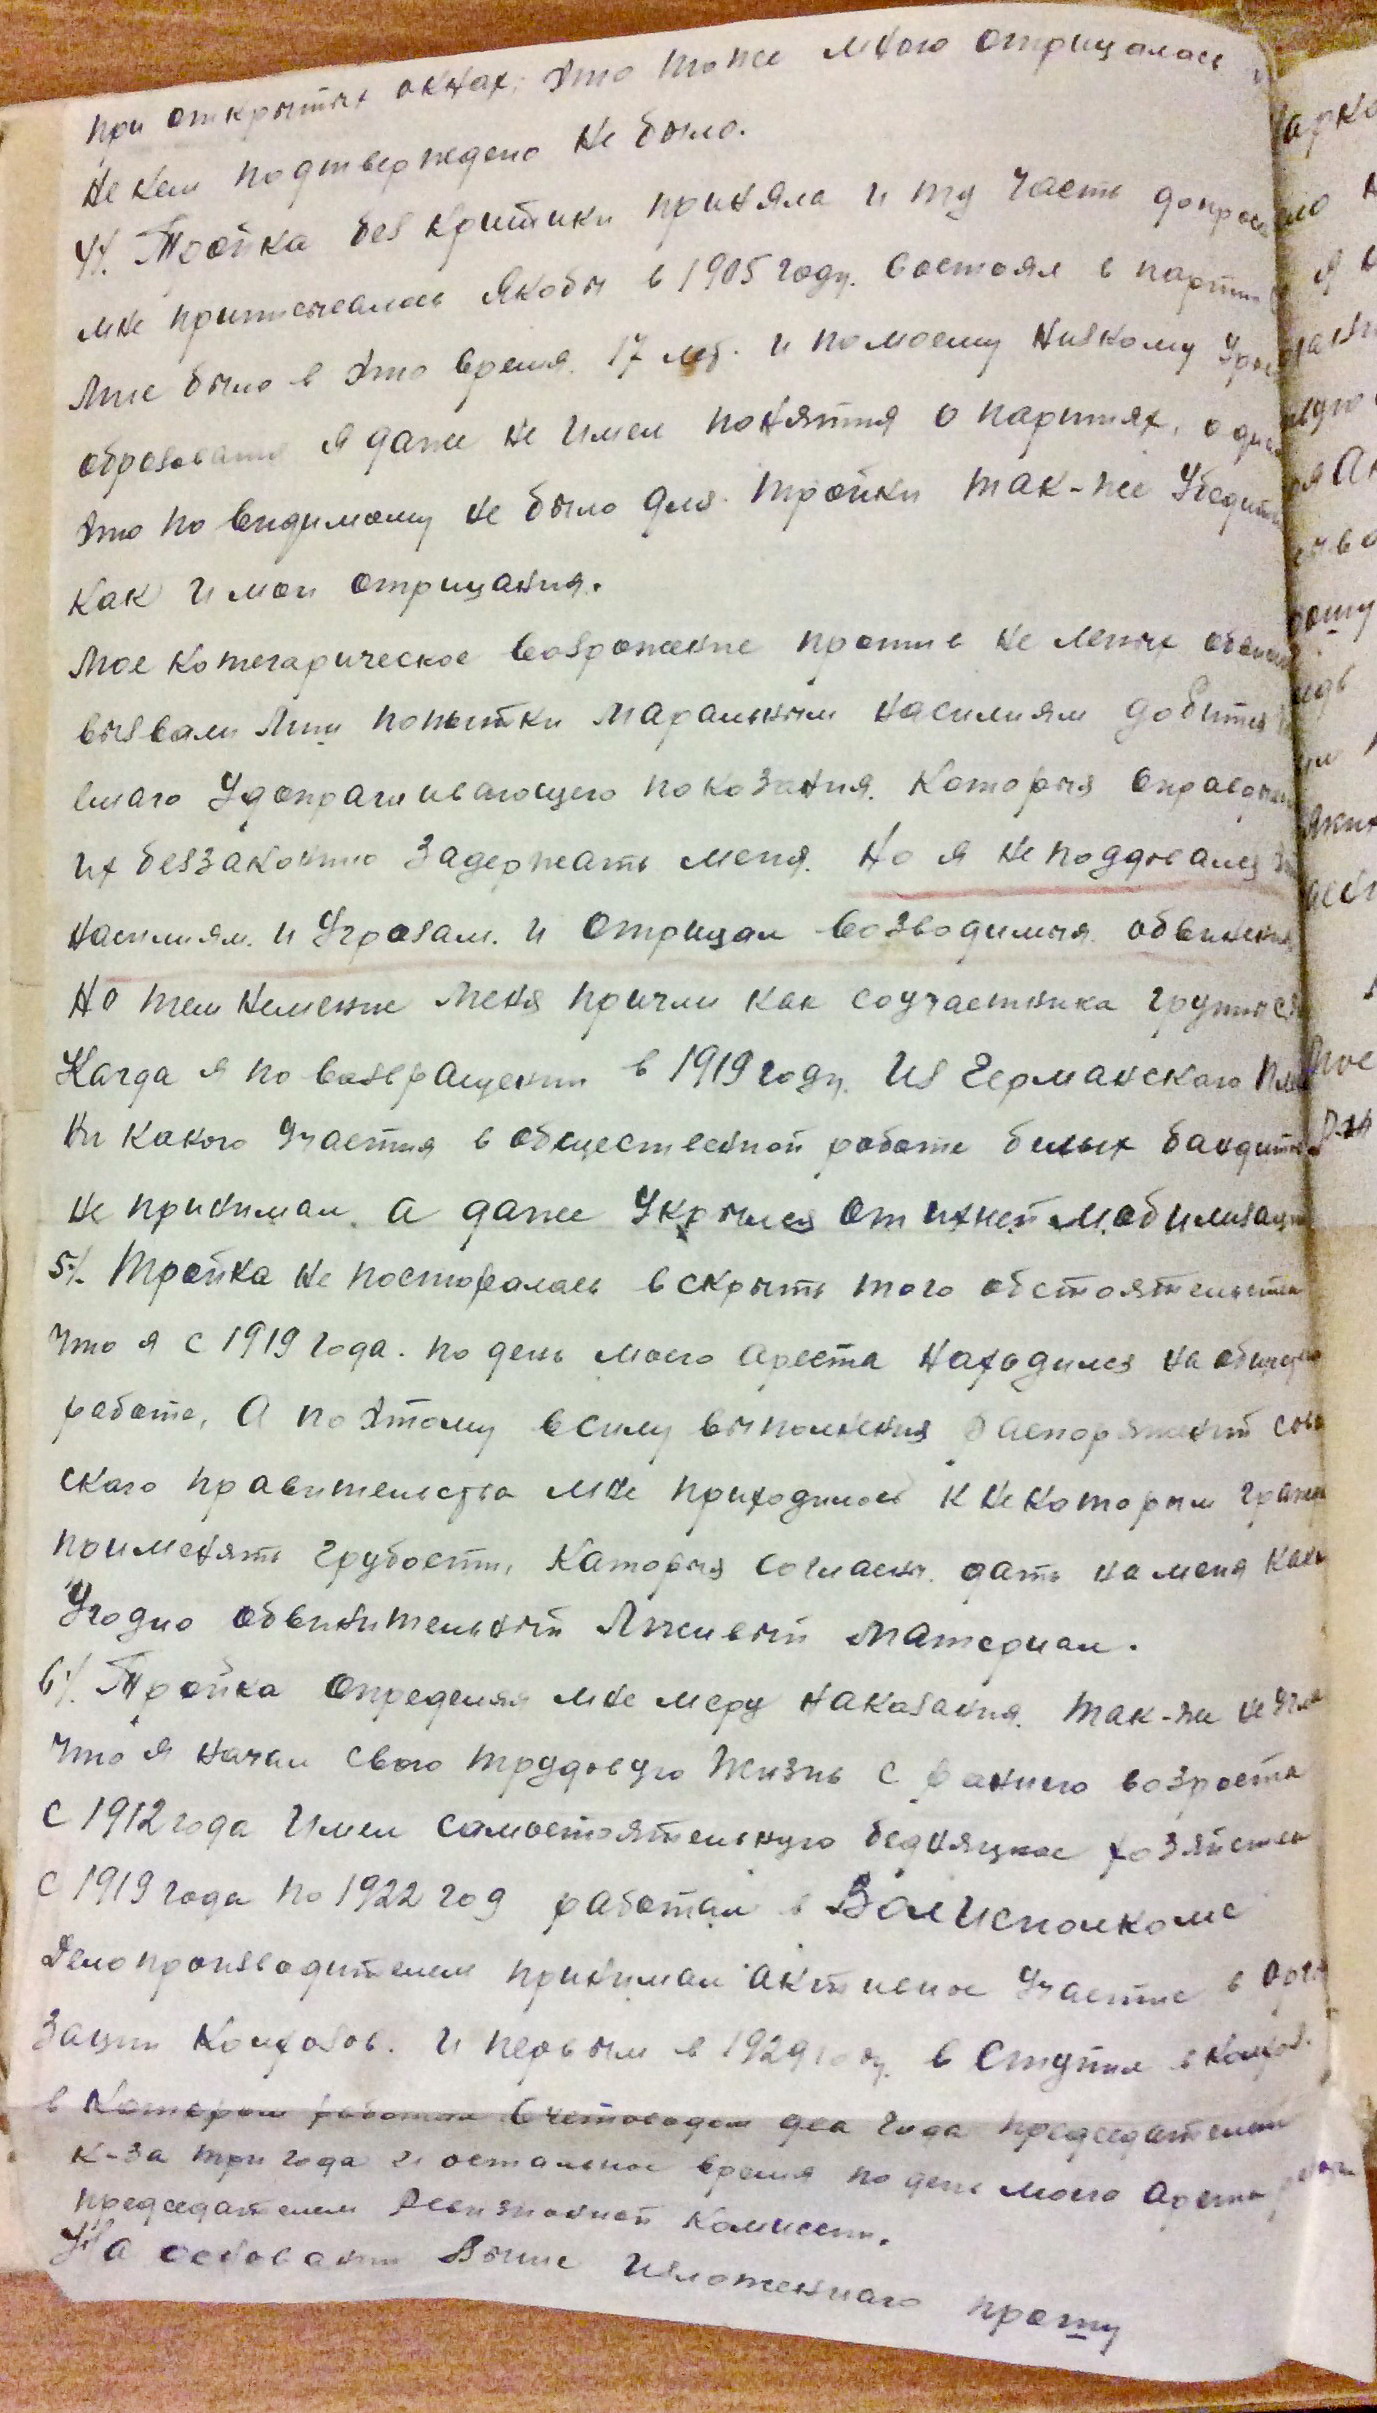 при открытых окнах, это тоже мною отрицалась
не кем подтверждено не было.
4/. Тройка без критики приняла и ту часть допроса
мне приписывалось якобы в 1905 году. состоял в партии
Мне было в это время. 17 лет. и по моему низкому уров
образования я даже не имел понятия о партиях, одна
это по видимому не было для тройки так-же убедит
как и мои отрицания.
Мое котегарическое возрожение против не лепых обвин
вызвали лиш попытки маральным насилиям добится
емаго удопрашивающего показания. Которыя оправдыв
их беззаконно задержать меня. Но я не поддовался
насилиям. и угрозам. и отрицал возводимыя обвинения
Но тем неменее меня причли как соучастника группы
Кагда я по возвращении в 1919 году. из Германскаго пле
ни какого участия в общественной работе белых бандит
не принимал. а даже укрылся от ихней мобилизац
5/. Тройка не постаралась вскрыть того обстоятельства
что я с 1919 года. по день моего ареста находился на общест
работе, а по этому в силу выполнения распоряжений сов
скаго правительства мне приходилось к некоторым граж
применять грубости, каторыя согласны. дать на меня как
угодно обвинительный лживый материал.
6/. Тройка определяя мне меру наказания. так-же не учла
что я начал свою трудовую жизнь с ранняго возроста
с 1912 года имел самостоятельную бедняцкое хозяйство
с 1919 года по 1922 год работал в Волисполкоме
Делопроизводителем принимал активное участие в орга
зации колхозов. и первым в 1929 году. в ступил в колхоз.
в котором работал счетоводом два года председателем
к-за три года и остальное время по день моего ареста
председателем Ревизионной комиссии.
На основании выше изложеннаго прошу